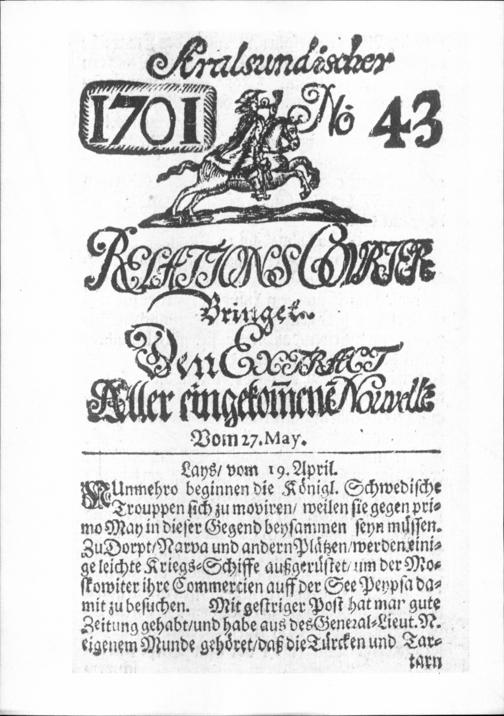 Stralsundischer
1701 No 43
RELATIONS COURIER
Bringet
Den EXTRACT
Aller eingekom̃enẽ Nouvelles
Vom 27. May.
Lays/ vom 19. April.
NUnmehro beginnen die Königl. Schwedische
Trouppen sich zu moviren/ weilen sie gegen pri-
mo May in dieser Gegend beysammen seyn müssen.
Zu Dorpt/ Narva und andern Plätzen/ werden eini-
ge leichte Kriegs-Schiffe außgerüstet/ um der Mo-
skowiter ihre Commercien auff der See Peypsa da-
mit zu besuchen. Mit gestriger Post hat man gute
Zeitung gehabt/ und habe aus des General-Lieut. N.
eigenem Munde gehöret/ daß die Türcken und Tar-
tarn